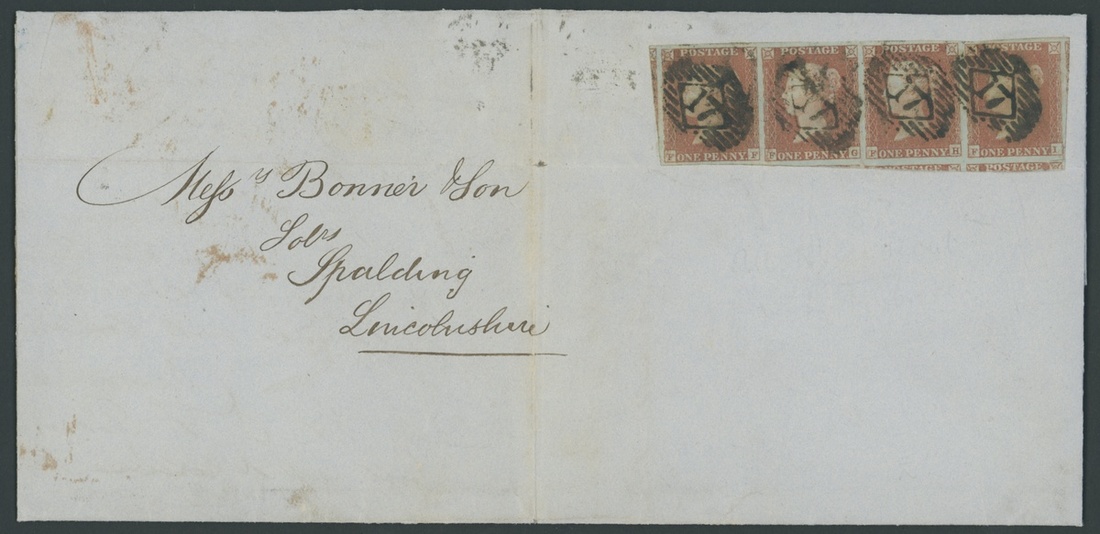 POSTAGE POSTAGE POSTAGE POSTAGE
F ONE PENNY F F ONE PENNY G F ONE PENNY H F ONE PENNY I
POSTAGE POSTAGE
Messrs Bonner & Son
Solrs
Spalding
Lincolnshire